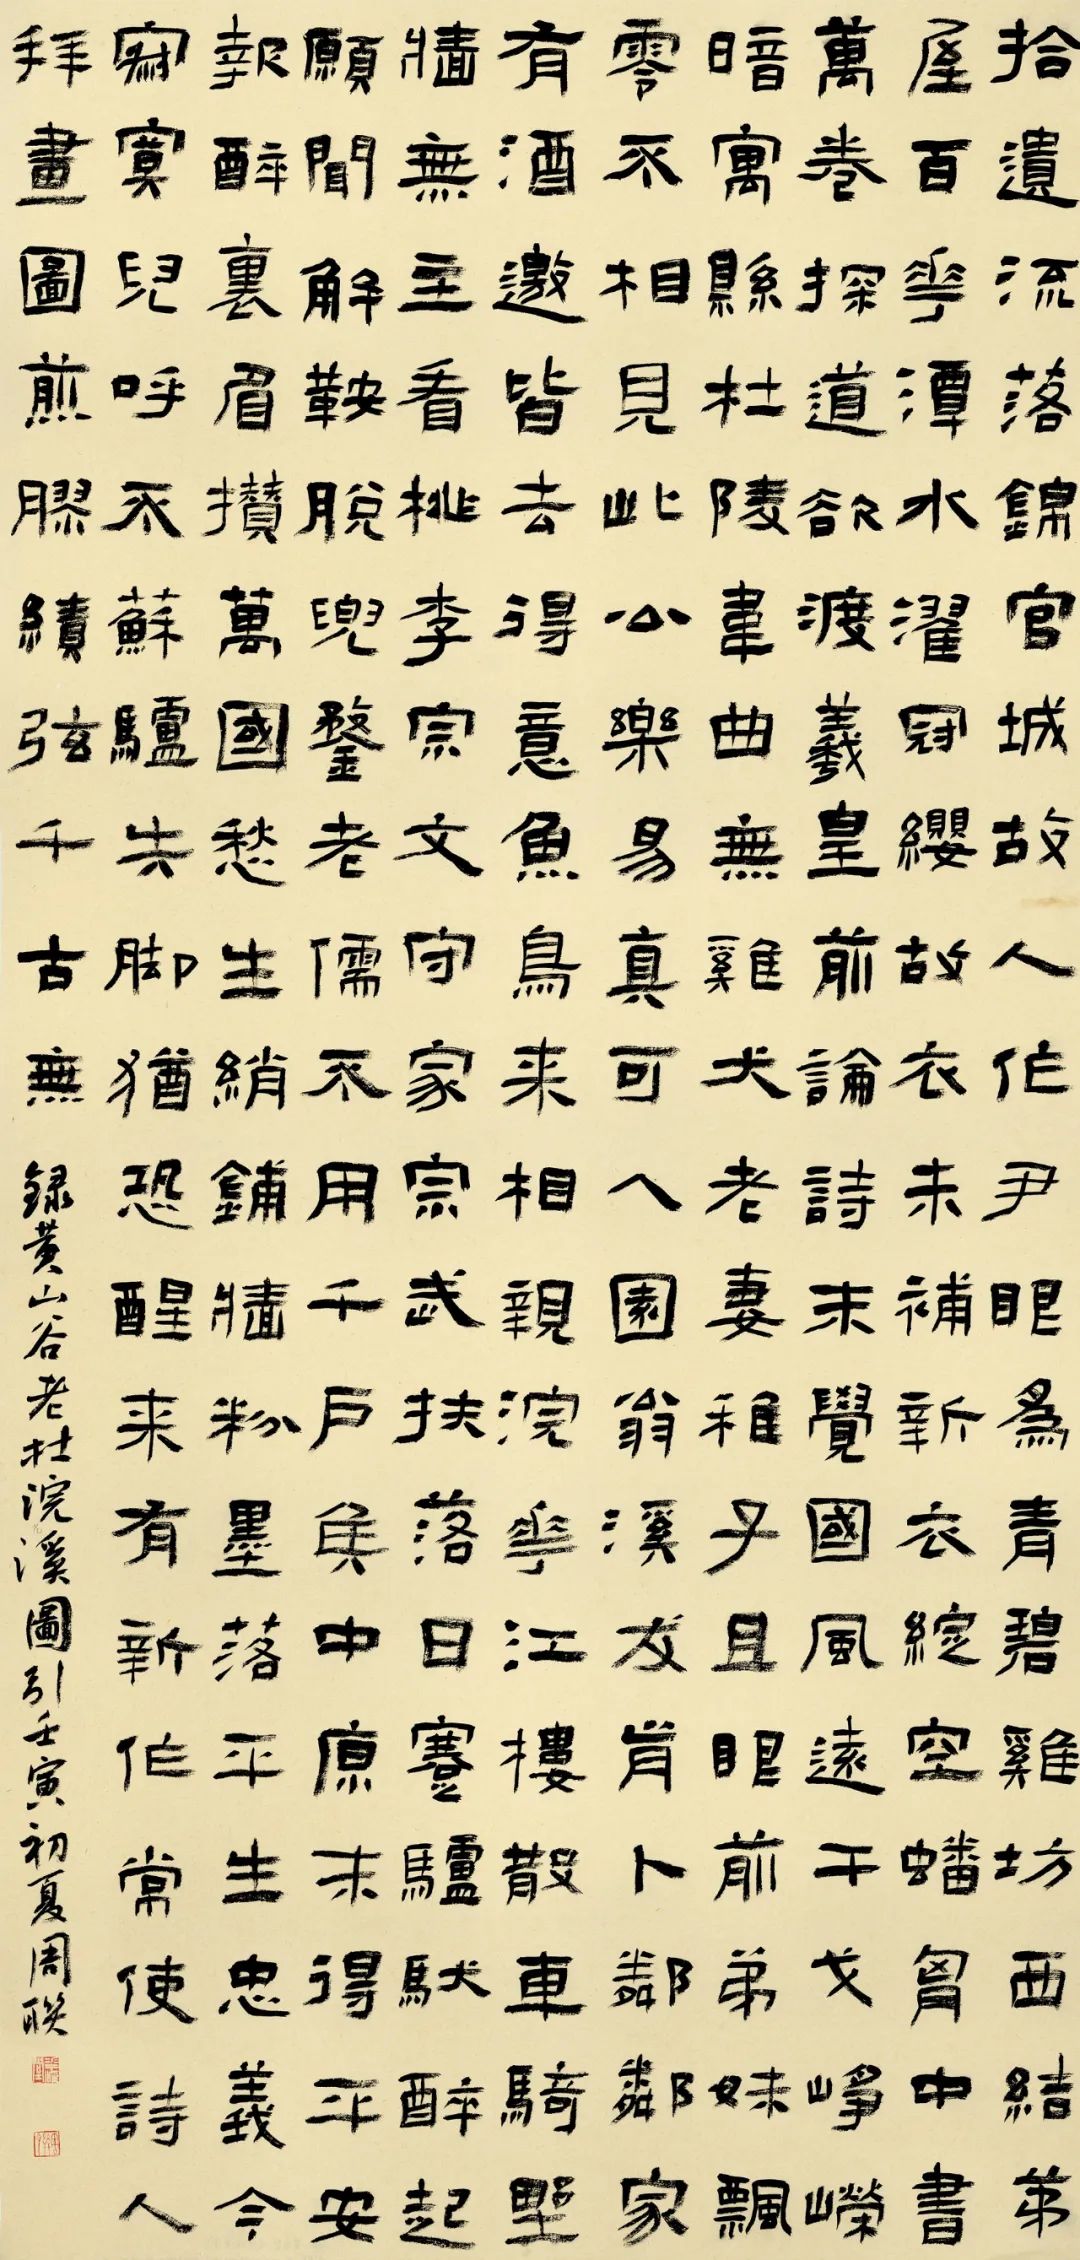 拾遺流落錦官城故人作尹眼為青碧雞坊西結茅
屋百花潭水濯冠纓故衣未補新衣綻空蟠胷中書
萬卷探道欲渡羲皇前論詩未覺國風遠干戈崢嶸
暗寓縣杜陵韋曲無雞犬老妻稚子且眼前弟妹飄
零不相見此公樂易真可人園翁溪友肯卜鄰鄰家
有酒邀皆去得意魚鳥来相親浣花江樓散車騎野
牆無主看桃李宗文守家宗武扶落日蹇驢馱醉起
願聞解鞍脫兜鍪老儒不用千戶侯中原未得平安
報醉裏眉攢萬國愁生綃鋪牆粉墨落平生忠義今
寂寞兒呼不蘇驢失脚猶恐醒来有新作常使詩人
拜畫圖煎膠續弦千古無
録黄山谷老杜浣溪圖引壬寅初夏周聯